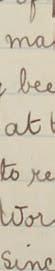 of
ma
bee
at t
to re
Wor
Sinc